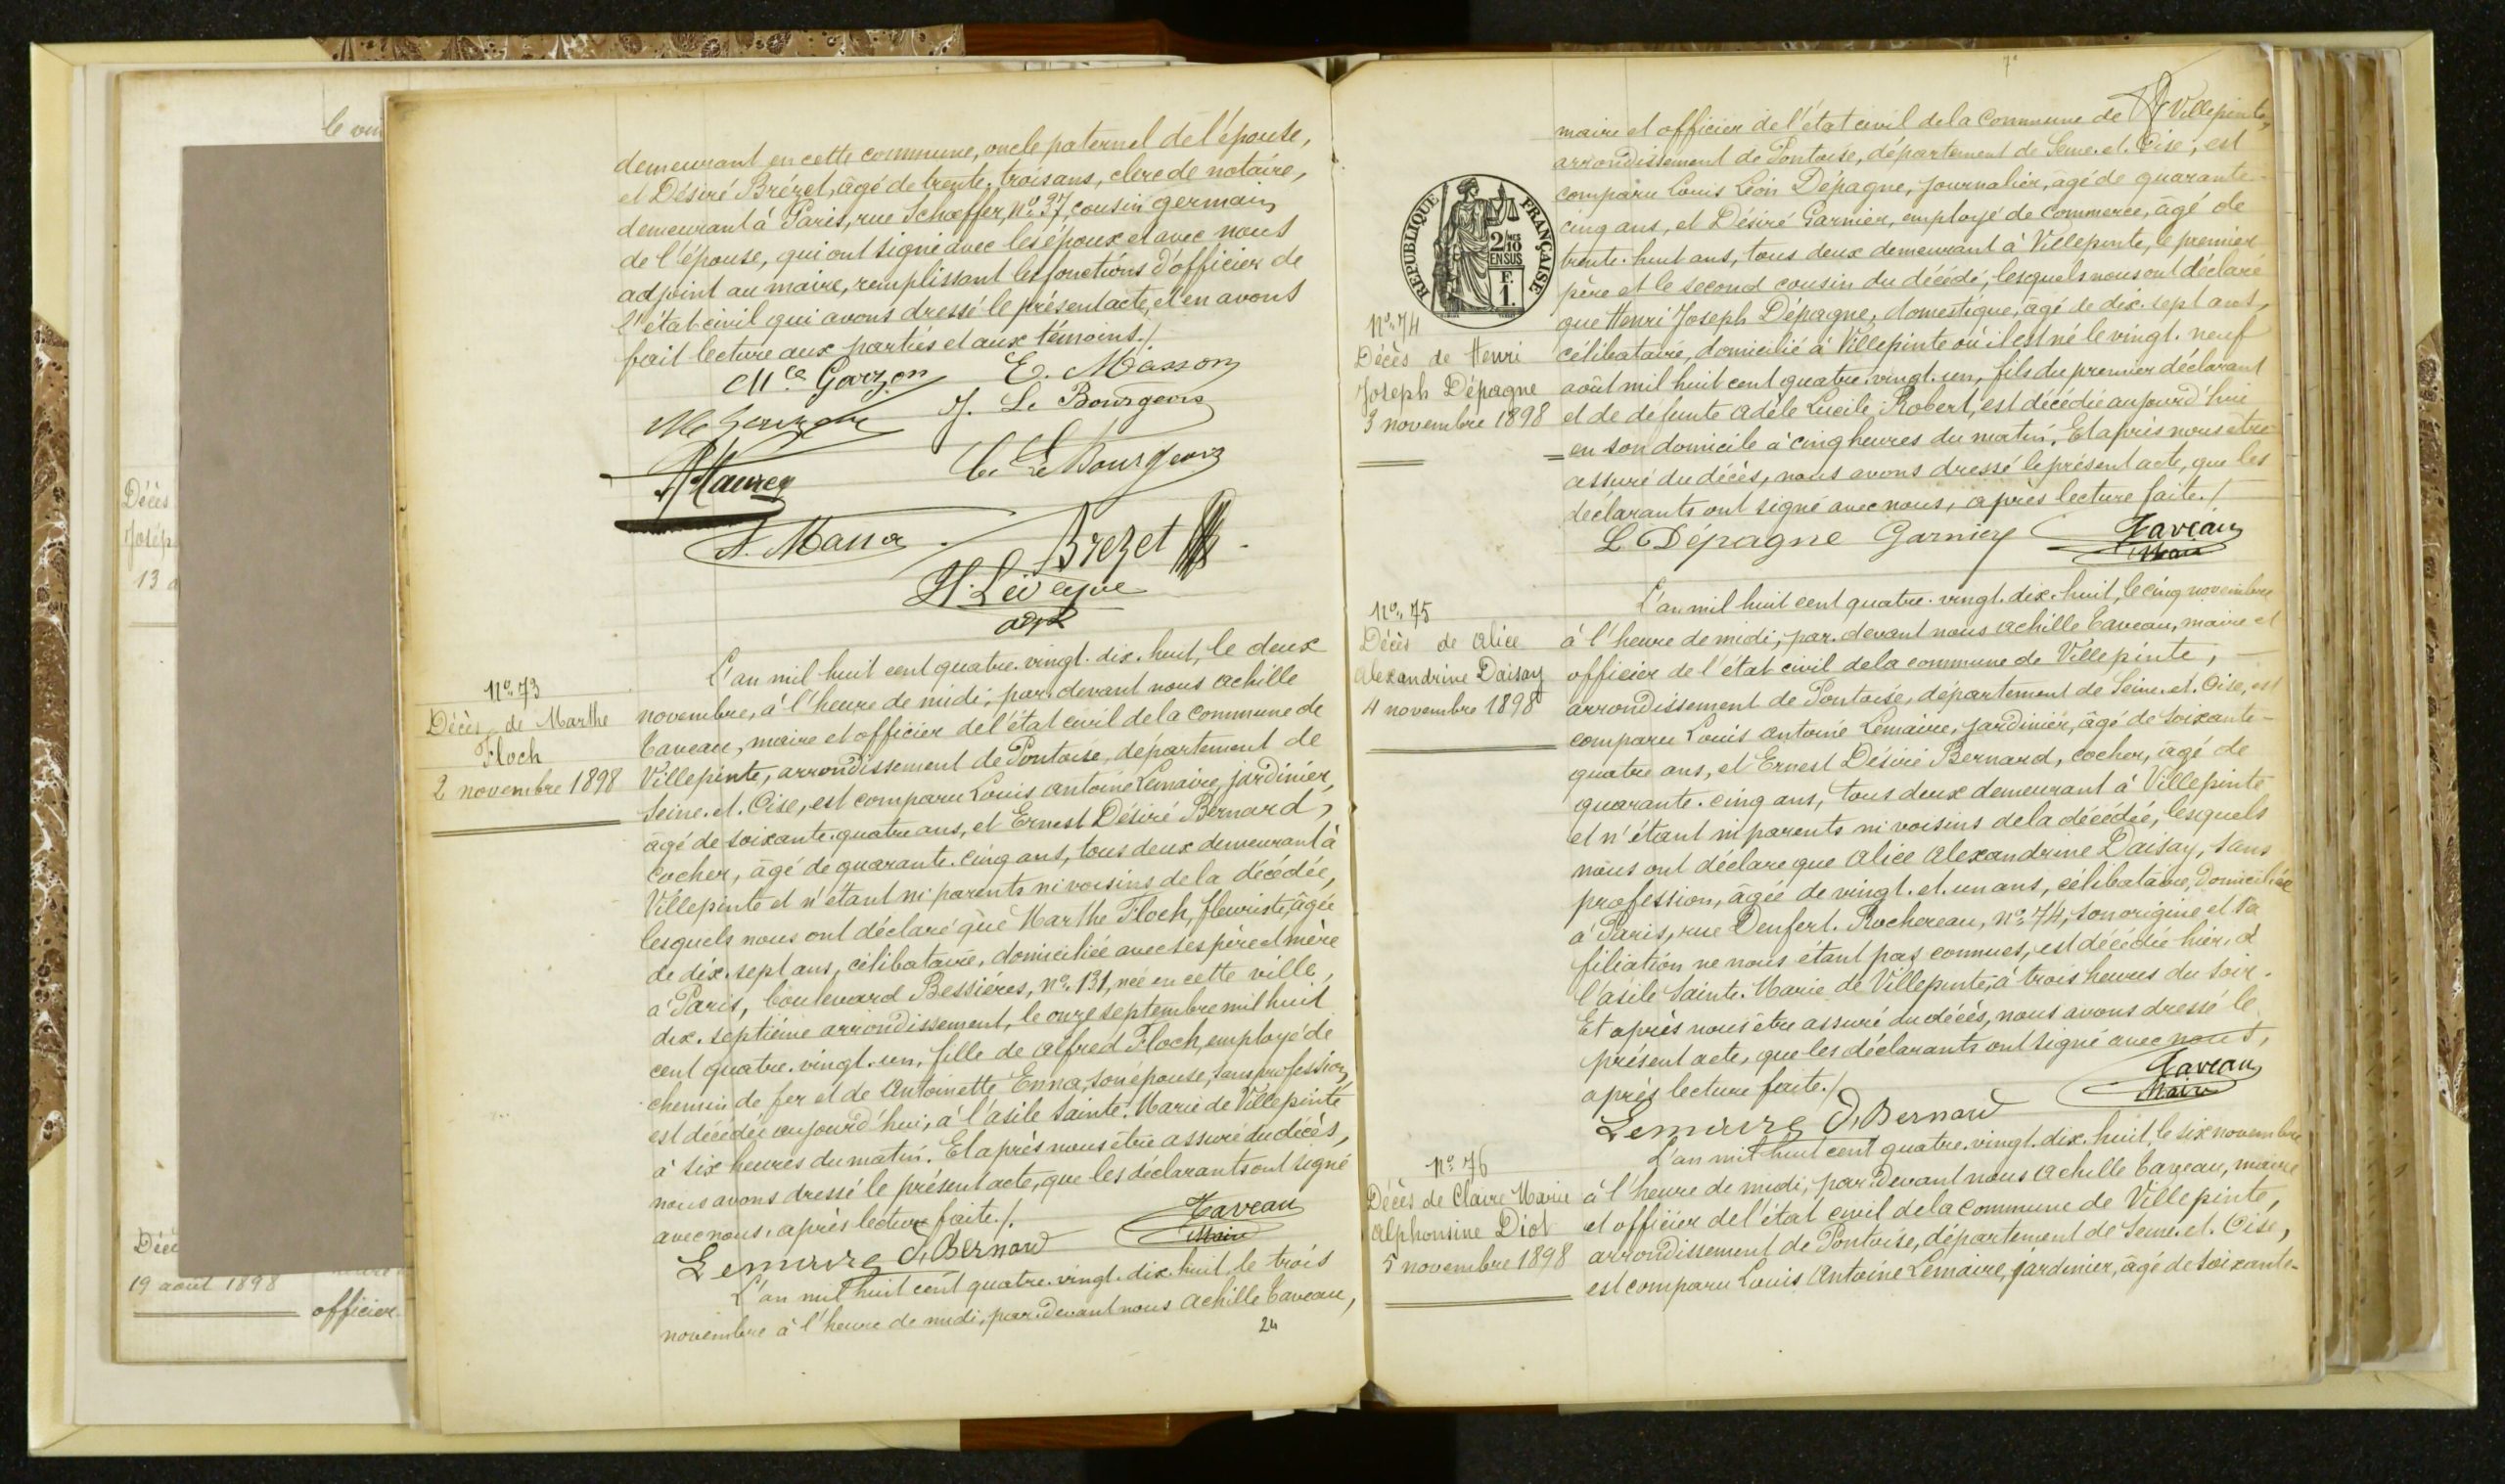 le vin
Décès
Josep
13 a
Déc
19 août 1898
officier
demeurant en cette commune, oncle paternel de l'épouse,
et Désiré Brézet, âgé de trente-trois ans, clerc de notaire,
demeurant à Paris, rue Schœffer, No 37, cousin germain
de l'épouse, qui ont signé avec les époux et avec nous
adjoint au maire, remplissant les fonctions d'officier de
l'état civil qui avons dressé le présent acte, et en avons
fait lecture aux parties et aux témoins./.
Mce Garzon E. Masson
J. Le Bourgeois
C. Le Bourgeois
Brezet
H. Levesque
adjt
No 73
Décès de Marthe
Floch
2 novembre 1898
L'an mil huit cent quatre-vingt-dix-huit, le deux
novembre, à l'heure de midi; par devant nous Achille
Taveau, maire et officier de l'état civil de la commune de
Villepinte, arrondissement de Pontoise, département de
Seine-et-Oise, est comparu Louis Antoine Lemaire, jardinier,
âgé de soixante-quatre ans, et Ernest Désiré Bernard,
cocher, âgé de quarante-cinq ans, tous deux demeurant à
Villepinte et n'étant ni parents ni voisins de la décédée,
lesquels nous ont déclaré que Marthe Floch, fleuriste, âgée
de dix-sept ans, célibataire, domiciliée avec ses père et mère
à Paris, boulevard Bessières, no 131, née en cette ville,
dix-septième arrondissement, le onze septembre mil huit
cent quatre-vingt-un, fille de Alfred Floch, employé de
chemin de fer et de Antoinette Enna, son épouse, sans profession,
est décédée aujourd'hui, à l'asile Sainte-Marie de Villepinte
à six heures du matin. Et après nous être assuré du décès,
nous avons dressé le présent acte, que les déclarants ont signé
avec nous, après lecture faite./.
Taveau
Maire
Lemaire D. Bernard
L'an mil huit cent quatre-vingt-dix-huit, le trois
novembre à l'heure de midi, par devant nous Achille Taveau,
24
maire et officier de l'état civil de la commune de Villepinte,
arrondissement de Pontoise, département de Seine-et-Oise, est
comparu Louis Léon Dépagne, journalier, âgé de quarante-
cinq ans, et Désiré Garnier, employé de commerce, âgé de
trente-huit ans, tous deux demeurant à Villepinte, le premier
père et le second cousin du décédé, lesquels nous ont déclaré
que Henri Joseph Dépagne, domestique, âgé de dix-sept ans,
célibataire, domicilié à Villepinte où il est né le vingt-neuf
août mil huit cent quatre-vingt-un, fils du premier déclarant
et de défunte Adèle Lucile Robert, est décédé aujourd'hui
en son domicile à cinq heures du matin. Et après nous être
assuré du décès, nous avons dressé le présent acte, que les
déclarants ont signé avec nous, après lecture faite./
L. Dépagne Garnier Taveau
Maire
RÉPUBLIQUE FRANÇAISE
2/10 MES
EN SUS
F.
1.
No 74
Décès de Henri
Joseph Dépagne
3 novembre 1898
No 75
Décès de Alice
Alexandrine Daisay
4 novembre 1898
L'an mil huit cent quatre-vingt-dix-huit, le cinq novembre
à l'heure de midi, par devant nous Achille Taveau, maire et
officier de l'état civil de la commune de Villepinte,
arrondissement de Pontoise, département de Seine-et-Oise, est
comparu Louis Antoine Lemaire, jardinier, âgé de soixante-
quatre ans, et Ernest Désiré Bernard, cocher, âgé de
quarante-cinq ans, tous deux demeurant à Villepinte
et n'étant ni parents ni voisins de la décédée, lesquels
nous ont déclaré que Alice Alexandrine Daisay, sans
profession, âgée de vingt-et-un ans, célibataire, domiciliée
à Paris, rue Denfert-Rochereau, no 74, son origine et sa
filiation ne nous étant pas connues, est décédée hier, à
l'asile Sainte-Marie de Villepinte, à trois heures du soir.
Et après nous être assuré du décès, nous avons dressé le
présent acte, que les déclarants ont signé avec nous,
après lecture faite./
Taveau
Maire
Lemaire D. Bernard
No 76
Décès de Claire Marie
Alphonsine Diot
5 novembre 1898
L'an mil huit cent quatre-vingt-dix-huit, le six novembre
à l'heure de midi, par devant nous Achille Taveau, maire
et officier de l'état civil de la commune de Villepinte,
arrondissement de Pontoise, département de Seine-et-Oise,
est comparu Louis Antoine Lemaire, jardinier, âgé de soixante-